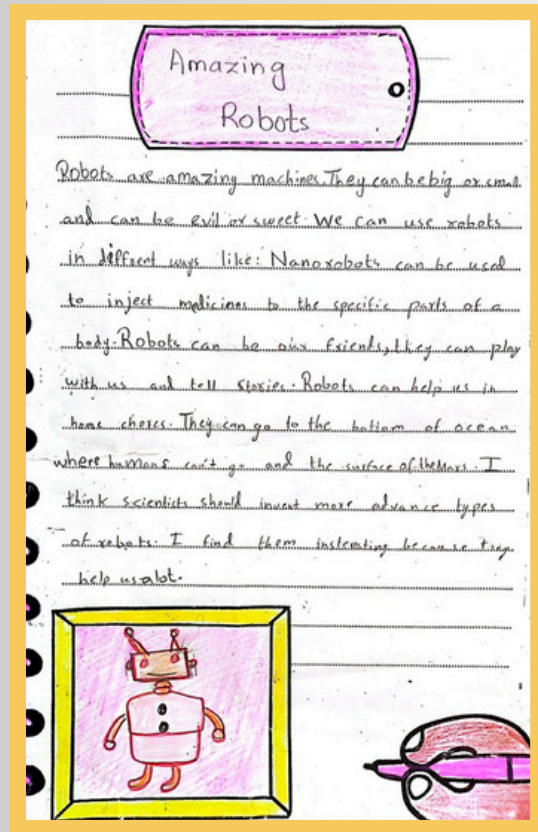 Amazing
Robots
Robots are amazing machines. They can be big or small
and can be evil or sweet. We can use robots
in diffrent ways like: Nanorobots can be used
to inject medicines to the specific parts of a
body. Robots can be our friends, they can play
with us and tell stories. Robots can help us in
home chores. They can go to the bottom of ocean
where humans can't go and the surface of the Mars. I
think scientists should invent more advance types
of robots. I find them insterating because they
help us alot.